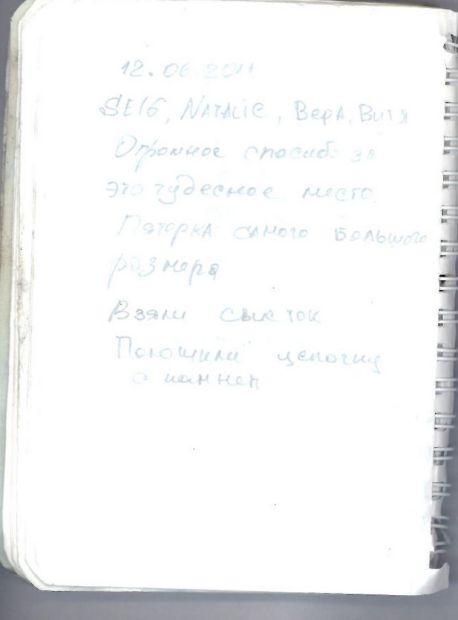 12.06.2011
SE16, NATALIE, ВЕРА, ВИТЯ
Огромное спасибо за
это чудесное место.
Пятерка самого большого
размера
Взяли свисток
Положили цепочку
с камнем